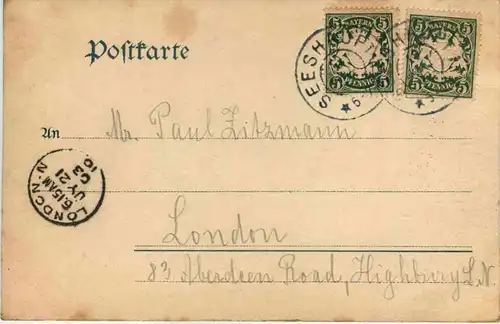 Postkarte
BAYERN
5 5
PFENNIG
BAYERN
5 5
PFENNIG
SEESHAUPT
An
Mr. Paul Zitzmann
LONDON·N
6.15AM
JY 21
03
London
83 Aberdeen Road, Highbury L.N.